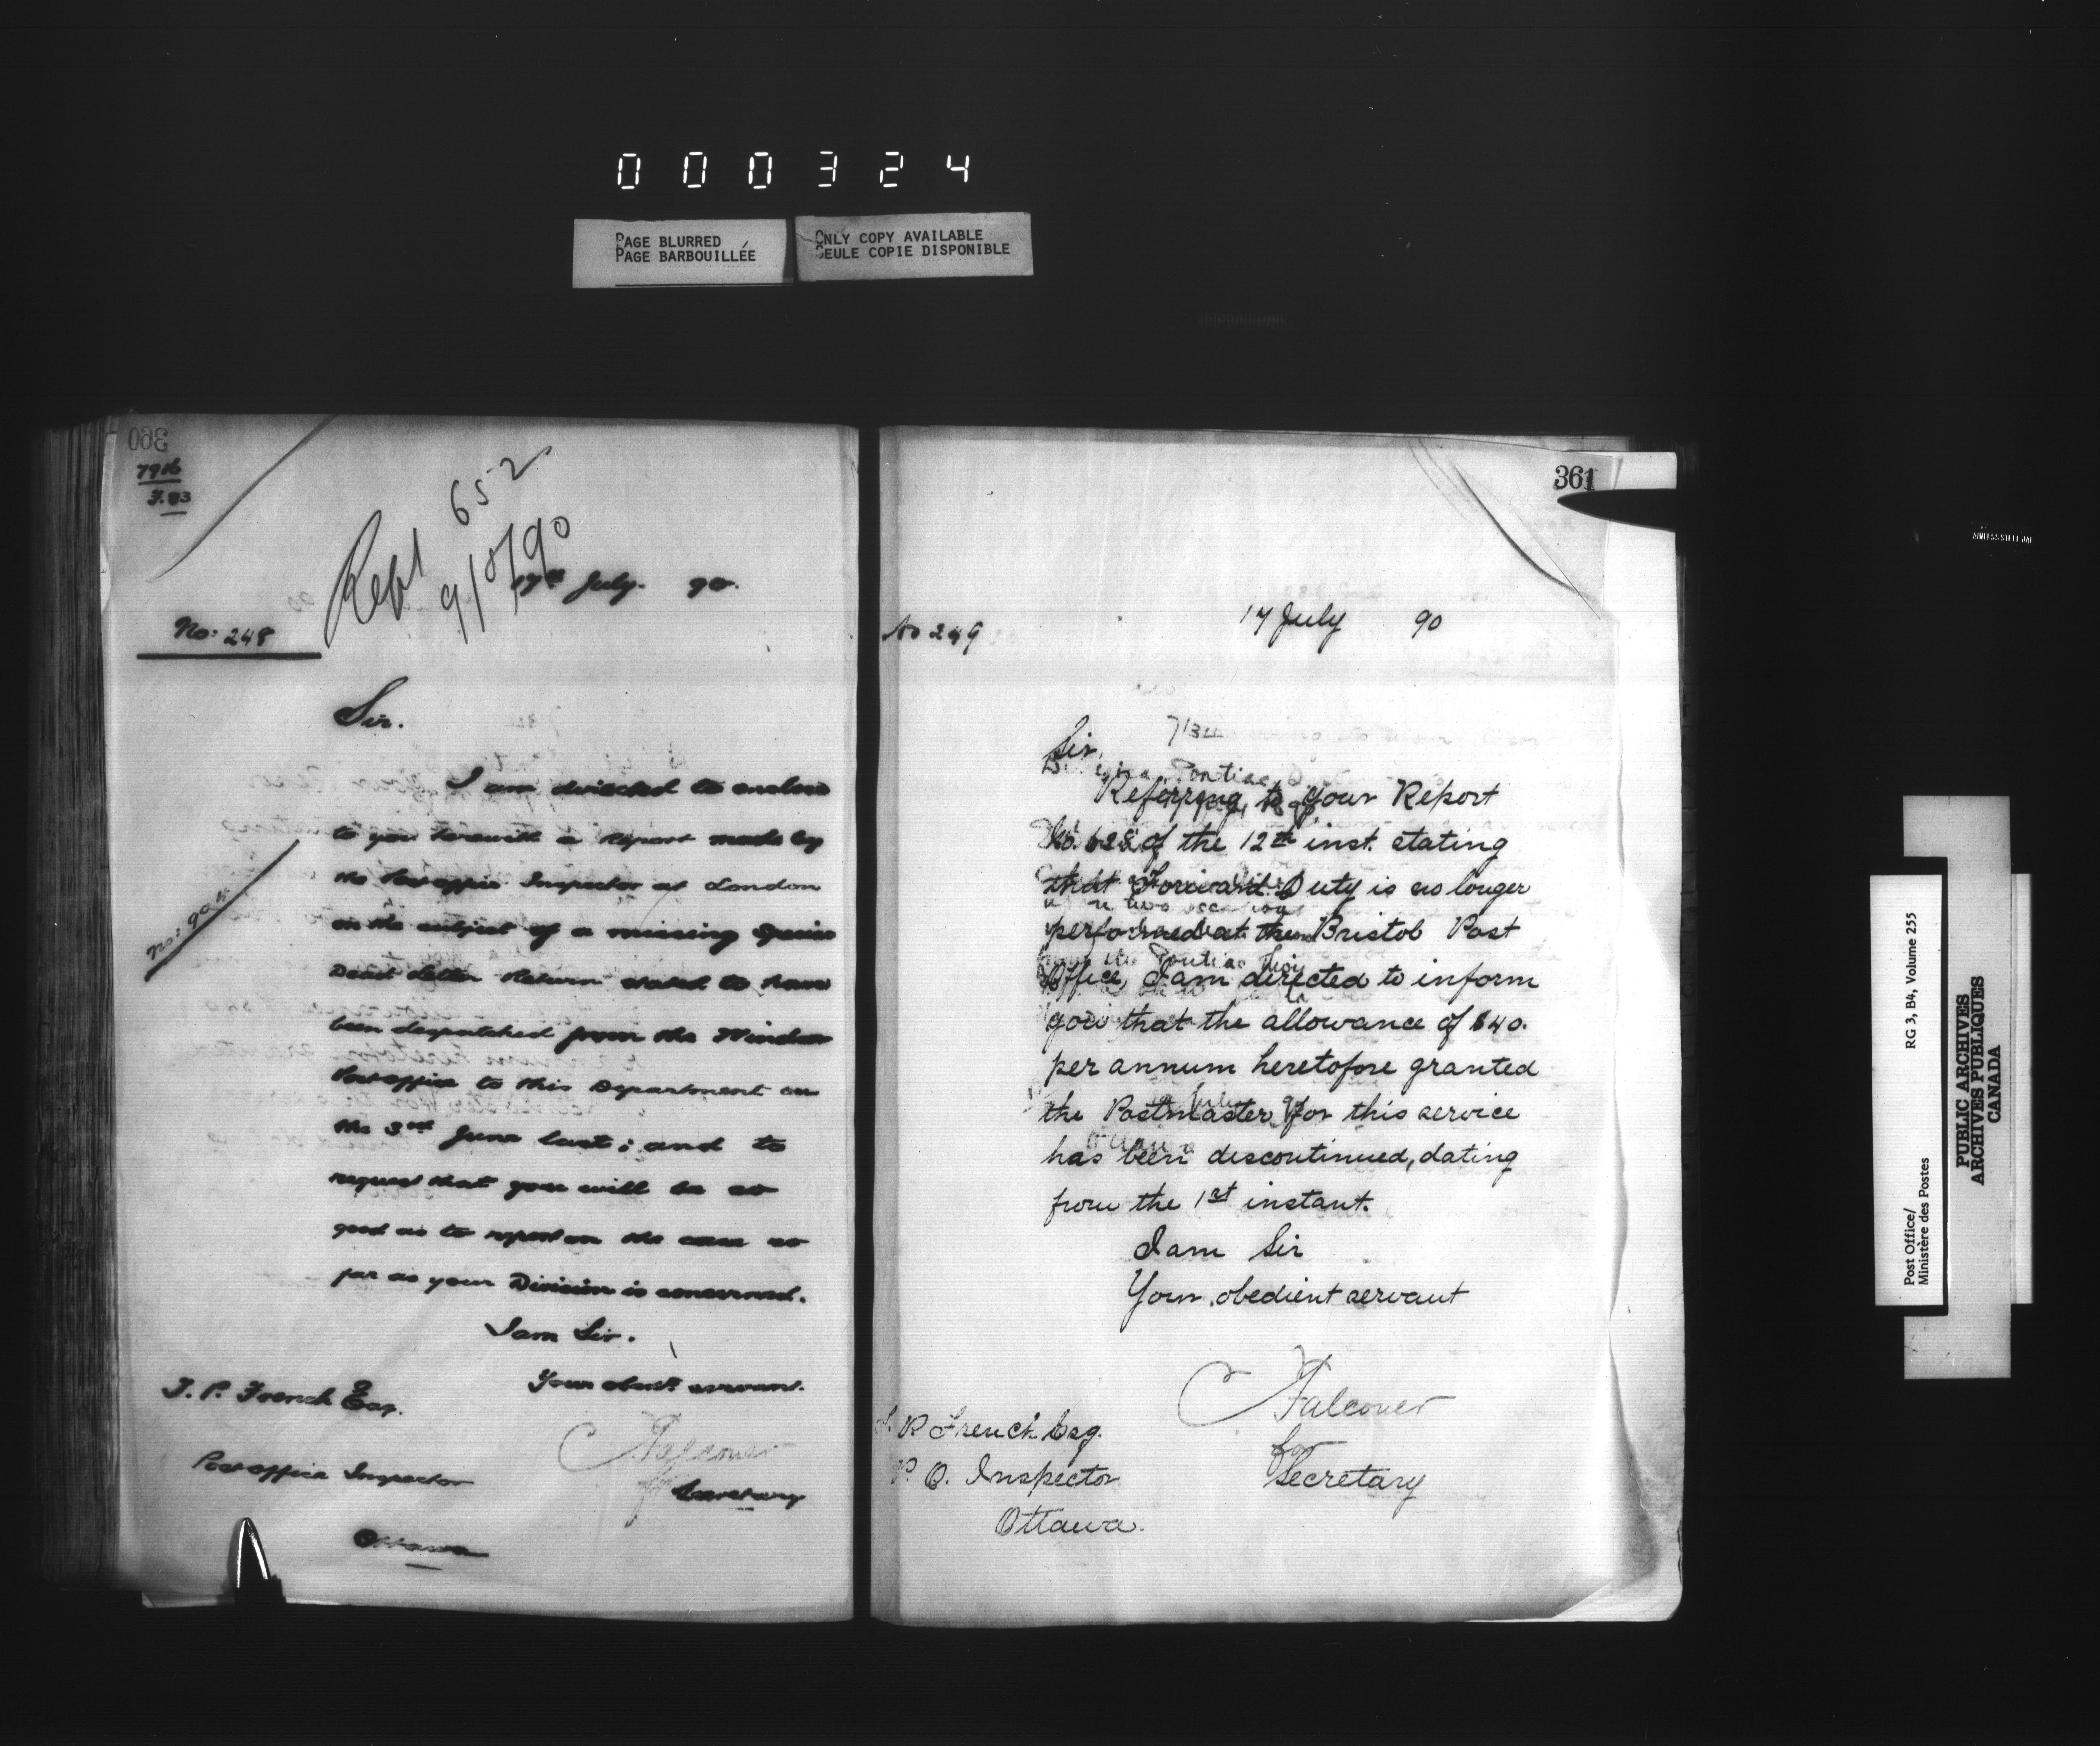 000324
PAGE BLURRED
PAGE BARBOUILLÉE
ONLY COPY AVAILABLE
SEULE COPIE DISPONIBLE
360
7916
F.83
652
9/8/90
17th July. 90.
No: 248
Sir.
I am directed to enclose
to you herewith a Report made by
the Post office Inspector at London
on the subject of a missing
Dead Letter Return stated to have
been despatched from the Windsor
Post office to this Department on
the 3rd June last; and to
request that you will be so
good as to report on the case so
far as your Division is concerned.
I am Sir.
Your obedt. servant.
T. P. French Esq.
C Falconer
for Secretary
Post office Inspector
Ottawa
No: 904
361
17 July 90
No 249
Sir,
Referring to your Report
No. 628 of the 12th inst. stating
that Forward Duty is no longer
performed at the Bristol Post
Office, I am directed to inform
you that the allowance of $40.
per annum heretofore granted
the Postmaster for this service
has been discontinued, dating
from the 1st instant.
I am Sir
Your obedient servant
C Falconer
for
Secretary
T. P. French Esq.
P. O. Inspector
Ottawa.
Post Office/
Ministère des Postes
RG 3, B4, Volume 255
PUBLIC ARCHIVES
ARCHIVES PUBLIQUES
CANADA